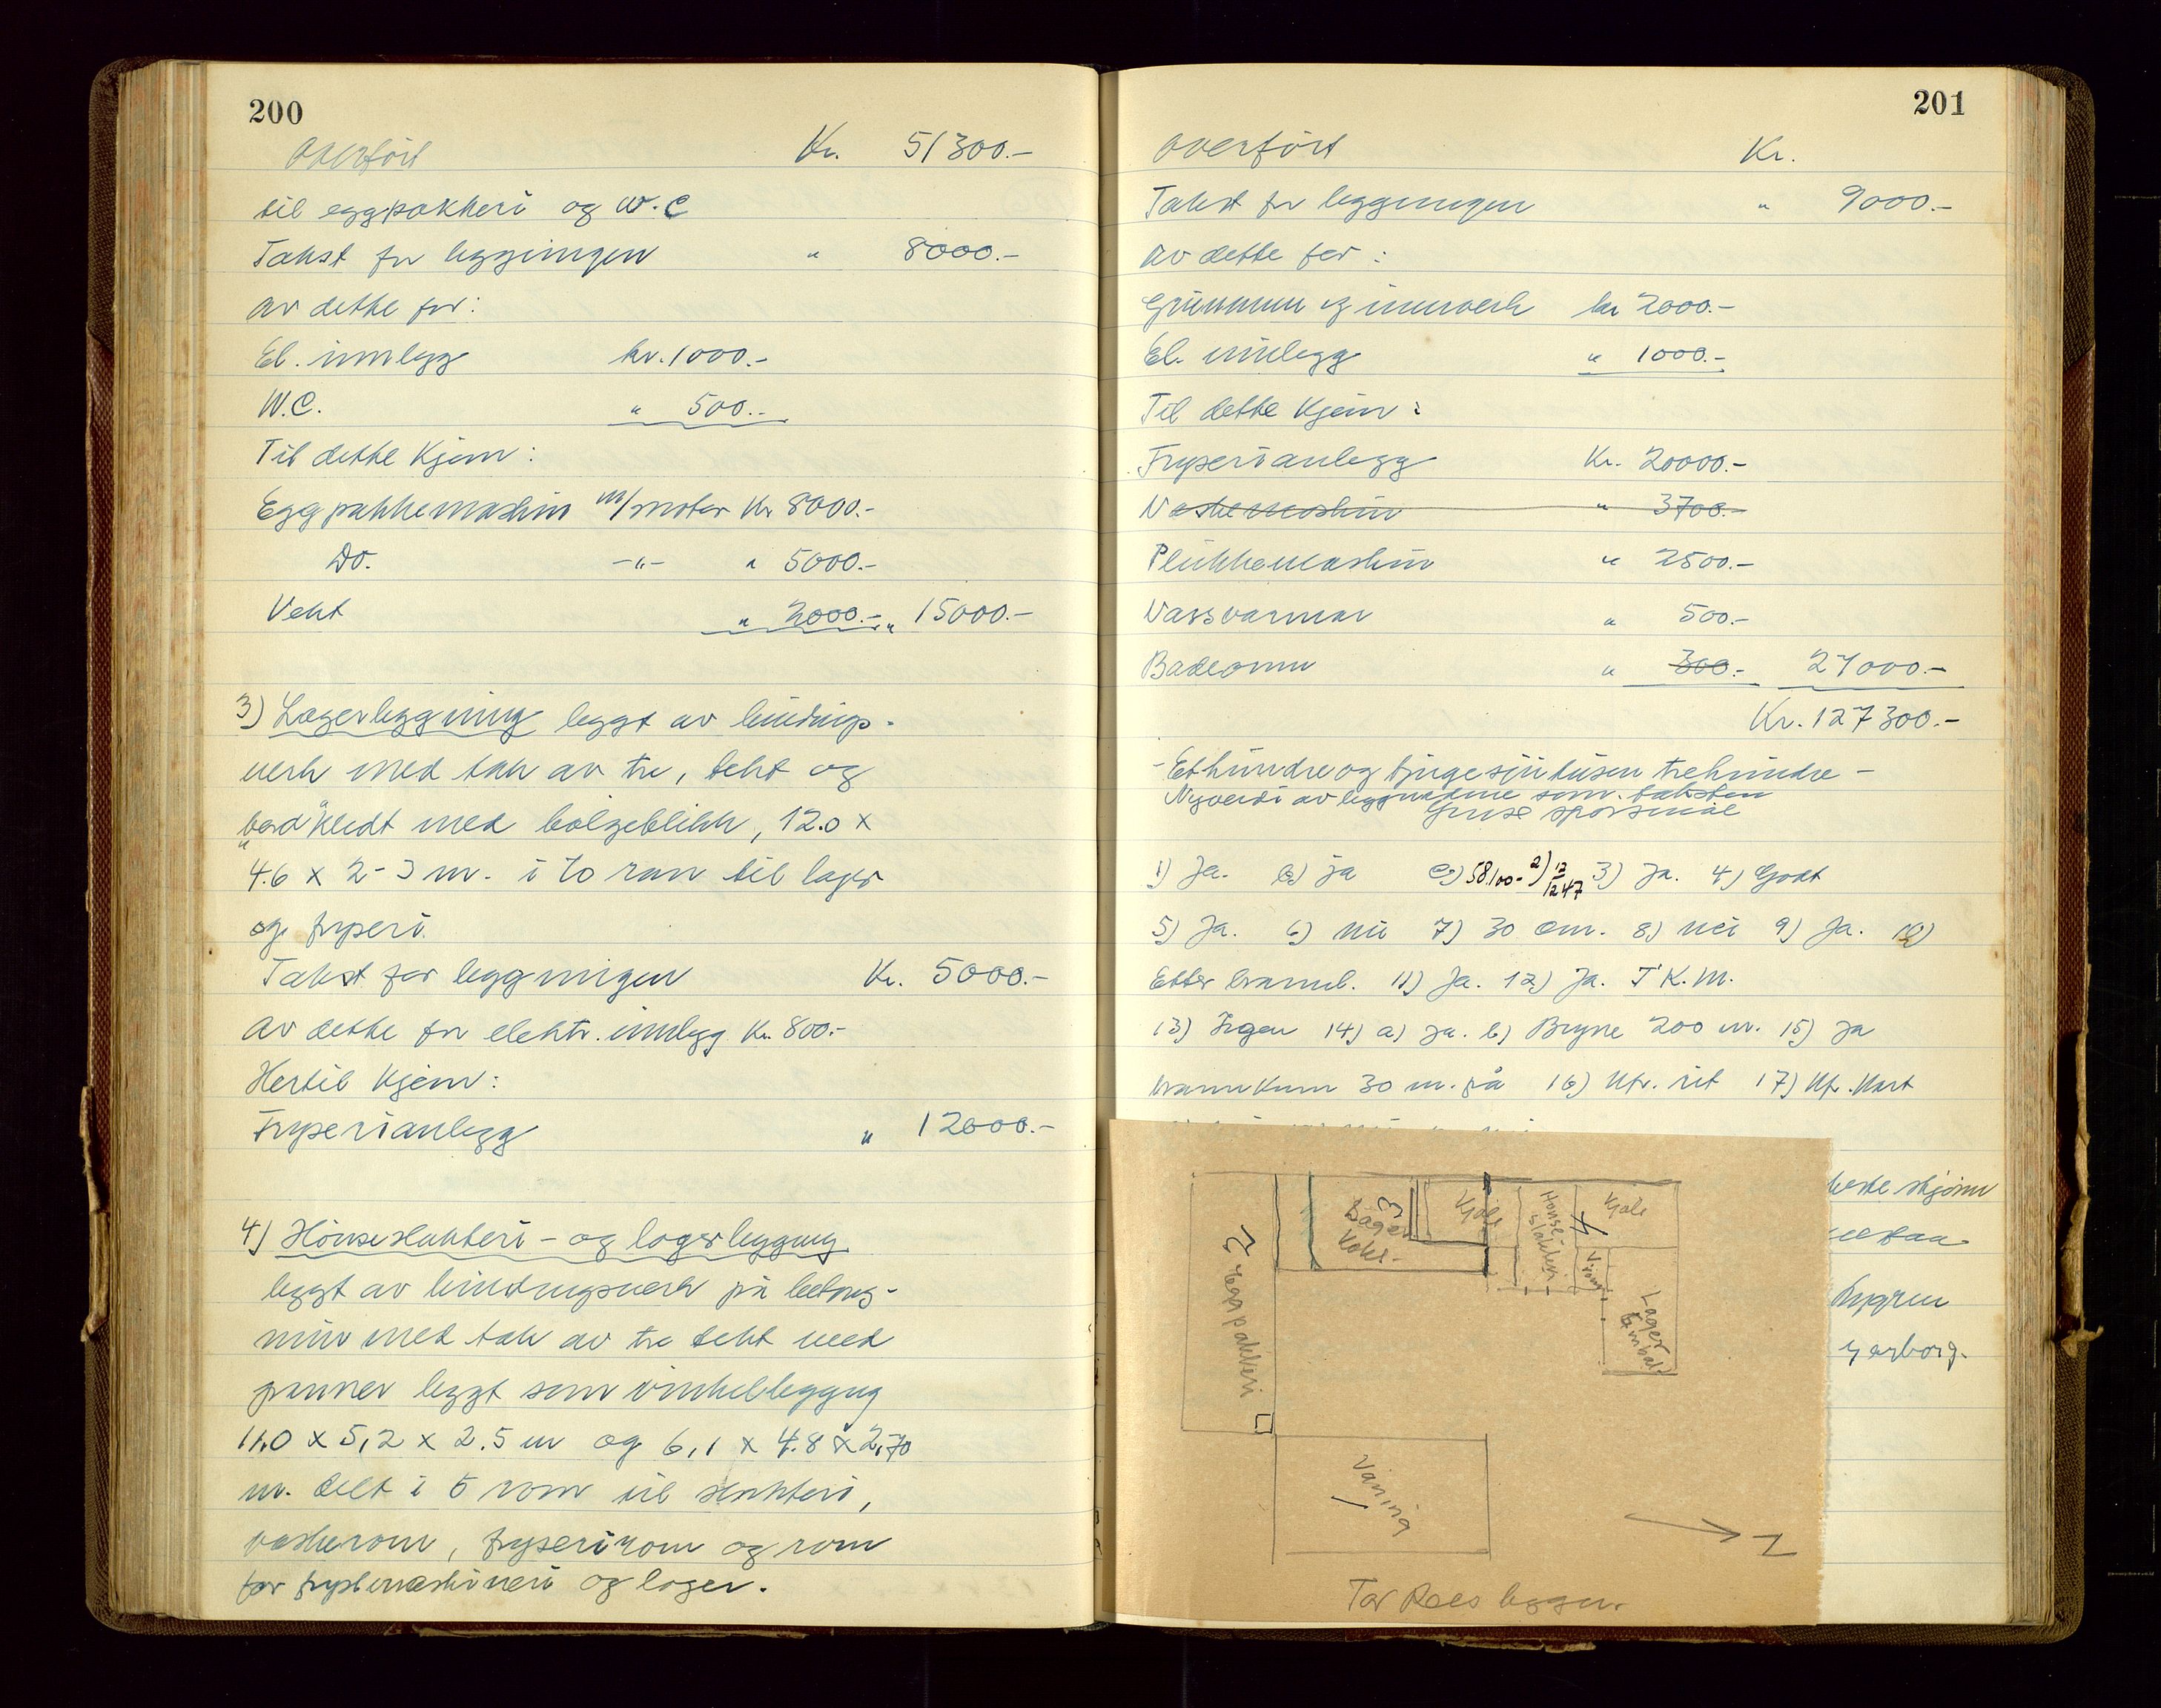 200
Overført Kr. 51300.-
til eggpakkeri og W.C
Takst for byggningen " 8000.-
av dette for:
El. innlegg kr. 1000.-
W.C. " 500.-
Til dette kjem:
Eggpakkemaskin m/motor Kr 8000.-
Do. -"- " 5000.-
Vekt " 2000.- " 15000.-
3) Lagerbyggning byggt av bindings-
verk med tak av tre, tekt og
kledt med bølgeblikk, 12.0 x
4.6 x 2-3 m. i to rom til lager
og fryseri.
Takst for byggningen Kr. 5000.-
Av dette for elektr. innlegg Kr. 800.-
Hertil kjem:
Fryserianlegg " 12000.-
4) Hönseslakteri- og lagerbyggning
byggt av bindingsverk på betong-
mur med tak av tre tekt med
panner byggt som vinkelbyggng
11.0 x 5,2 x 2.5 m og 6,1 x 4.8 x 2,70
m. delt i 5 rom til slakteri,
vaskerom, fryserirom og rom
for frysemaskineri og lager.
201
Overført Kr.
Takst for byggningen " 9000.-
Av dette for:
Grunnmur og murverk kr 2000.-
El. innlegg " 1000.-
Til dette kjem:
Fryserianlegg Kr. 20000.-
Vaskemaskin " 3700.-
Plukkemaskin " 2500.-
Vassvarmar " 500.-
Badeomn " 300.- 27000.-
Kr. 127300.-
- Ethundreogtjuge sjutusen trehundre -
Nyverdi av byggnadene som taksten
Spørsmål
1) Ja. b) ja c) 58.100.- 2) 12/12 47 3) Ja. 4) Godt
5) Ja. 6) Nei 7) 30 cm. 8) Nei 9) Ja. 10)
Etter brannb. 11) Ja. 12) Ja. T K.M.
13) Ingen 14) a) Ja. b) Bryne 200 m. 15) Ja
brannkum 30 m. frå 16) Nfr. rit 17) Nfr. Kart
beste skjønn
Nygren
Garborg.
2 Eggpakkeri
Lager
Koks-
3
Kjøle
Hönse-
slakteri
4
Kjøle
V.rom
Lager
Embal.
Våning
1
N
Tor Rees bygger